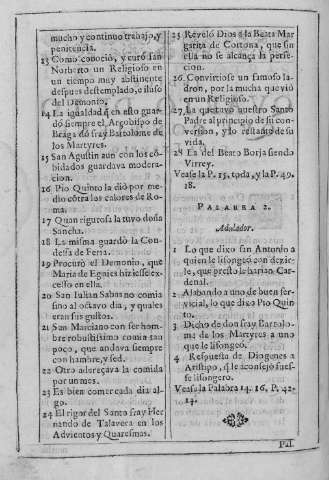 mucho y continuo trabajo, y
penitencia.
13 Como conociò, y curò san
Norberto un Religioso en
un tiempo muy abstinente
despues destemplado, e iluso
del Demonio.
14 La igualdad q̃ en esto guar-
dò siempre el Arçobispo de
Braga dõ fray Bartolome de
los Martyres.
15 San Agustin aun con los cõ-
bidados guardava modera-
cion.
16 Pio Quinto la diò por me-
dio cõtra los calores de Ro-
ma.
17 Quan rigurosa la tuvo doña
Sancha.
18 La misma guardò la Con-
dessa de Feria.
19 Procurò el Demonio, que
Maria de Egnies hiziesse ex-
cesso en ella.
20 San Iulian Sabas no comia
sino al octavo dia, y quales
eran sus guisos.
21 San Marciano con ser hom-
bre robustissimo comia tan
poco, que andava siempre
con hambre, y sed.
22 Otro adereçava la comida
por un mes.
23 Es bien comer cada dia al-
go.
24 El rigor del Santo fray Her-
nando de Talavera en los
Advientos y Quaresmas.
25 Revelò Dios à la Beata Mar-
garita de Cortona, que sin
ella no se alcança la perfe-
cion.
26 Convirtiose un famoso la-
dron, por la mucha que viò
en un Religioso.
27 La que tuvo nuestro Santo
Padre al principio de su con-
version, y lo restante de su
vida.
28 La del Beato Borja siendo
Virrey.
Vease la P. 15. toda, y la P. 49.
18.
PALABRA 2.
Adulador.
1 Lo que dixo san Antonio a
quien le lisongeò con dezir-
le, que presto le harian Car-
denal.
2 Alabando a uno de buen ser-
vicial, lo que dixo Pio Quin-
to.
3 Dicho de don fray Bartolo-
me de los Martyres a uno
que le lisongeò.
4 Respuesta de Diogenes a
Aristipo, q̃ le aconsejò fues-
se lisongero.
Vease la Palabra 14. 16. P. 42.
14.
Pal.